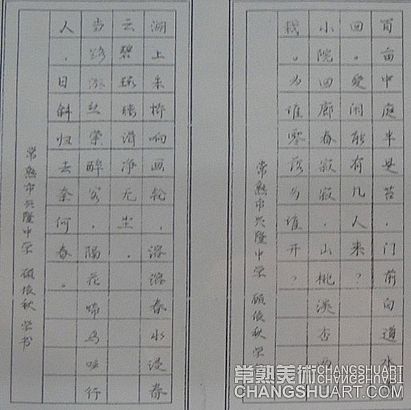 百亩中庭半是苔，门前白道水
回。爱闲能有几人来？
小院回廊春寂寂，山桃溪杏两
栽。为谁零落为谁开？
常熟市兴隆中学 顾依秋 学
湖上朱桥响画轮，溶溶春水浸春
云碧琉璃滑净无尘。
当路游丝萦醉客，隔花啼鸟唤行
人，日斜归去奈何春。
常熟市兴隆中学 顾依秋 学书
常熟美術 CHANGSHUART
CHANGSHUART.COM